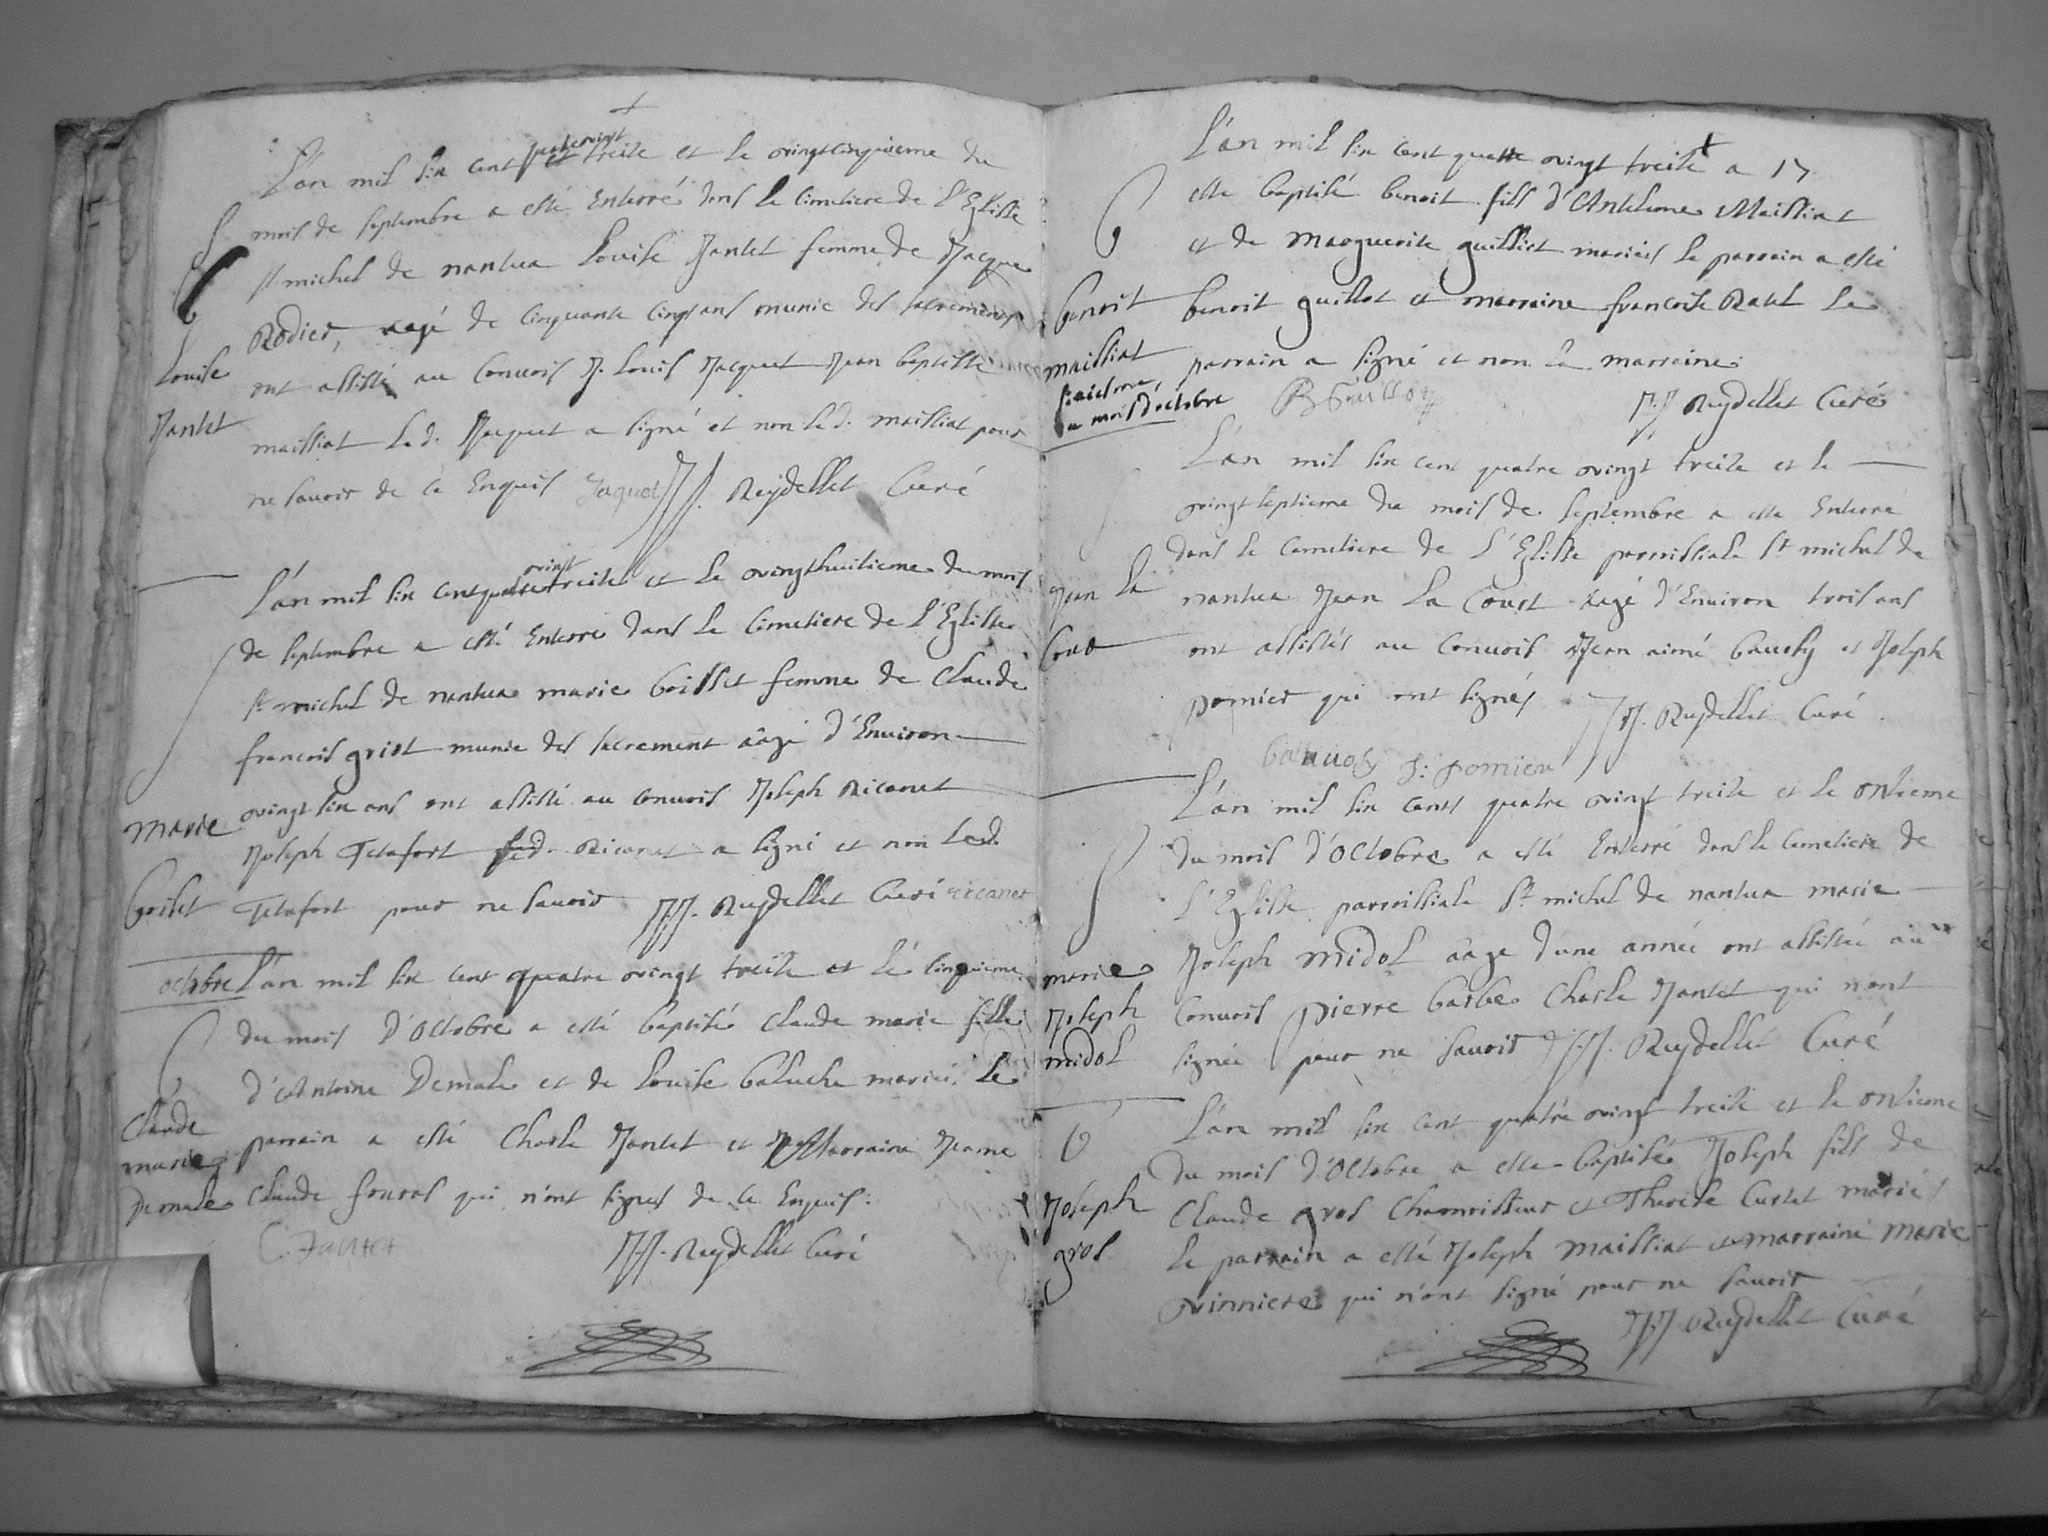 L'an mil six cent quatrevingt treize et le vingtcinquieme du
mois de septembre a esté Enterré dans le Cimetiere de l'Eglise
st michel de nantua Louise Jantet femme de Jacque
Rodier, aagé de cinquante cinq ans munie des sacremens
Louise
ont assisté au Convois J. Louis Jacquet Jean baptiste
Jantet
maissiat led. Jacquet a signé et non led. maissiat pour
ne savoir de ce Enquis Jaquet J.J. Reydellet Curé
L'an mil six cent quatre vingt treize et le vingthuitieme du mois
de septembre a esté Enterré dans le Cimetiere de l'Eglise
st michel de nantua marie boisset femme de Claude
francois griot munie des sacrement aagé d'Environ
vingt six ans ont assisté au convois Joseph Ricanet
marie
Joseph Tetafort led. Ricanet a signé et non led.
boisset
Tetafort pour ne savoir J.J. Reydellet Curé ricanet
octobre
L'an mil six cent quatre vingt treize et le cinquieme
du mois d'Octobre a esté baptisé Claude marie fille
d'Antoine Demale et de Louise baluche mariés le
Claude
marie
Demale
parrain a esté Charle Jantet et Marraine Jeanne
Claude fouras qui n'ont signés de ce Enquis:
C. Jantet
J.J. Reydellet Curé
L'an mil six cent quatre vingt treize a 17
este baptisé benoit fils d'Antelme Maissiat
et de Marguerite guilliet mariés le parrain a esté
benoit
benoit guillot et marraine francoise Ratel le
maissiat
parrain a signé et non la marraine.
mois d'octobre
B Guillot
J.J. Reydellet Curé
L'an mil six cent quatre vingt treize et le
vingt septieme du mois de septembre a esté Enterré
dans le Cemetiere de l'Eglise parroissiale st michel de
Jean La
nantua Jean La Court aagé d'Environ trois ans
Cour
ont assistés au Convois Jean aimé bauchy et Joseph
pomier qui ont signés J.J. Reydellet Curé.
J: pomier
L'an mil six cents quatre vingt treize et le onzieme
du mois d'Octobre a esté Enterré dans le Cemetiere de
l'Eglise parroissiale st michel de nantua marie
marie
Joseph
midol
Joseph Midol aage d'une année ont assistée au
Convois pierre barbe Charle Jantet qui n'ont
signée pour ne savoir J.J. Reydellet Curé
L'an mil six cent quatre vingt treize et le onzieme
du mois d'Octobre a esté baptisé Joseph fils de
Joseph
gros
Claude gros Chamoisseur et Therese Curtet mariés
le parrain a esté Joseph Maissiat et marraine Marie
vinniere qui n'ont signé pour ne savoir
J.J. Reydellet Curé